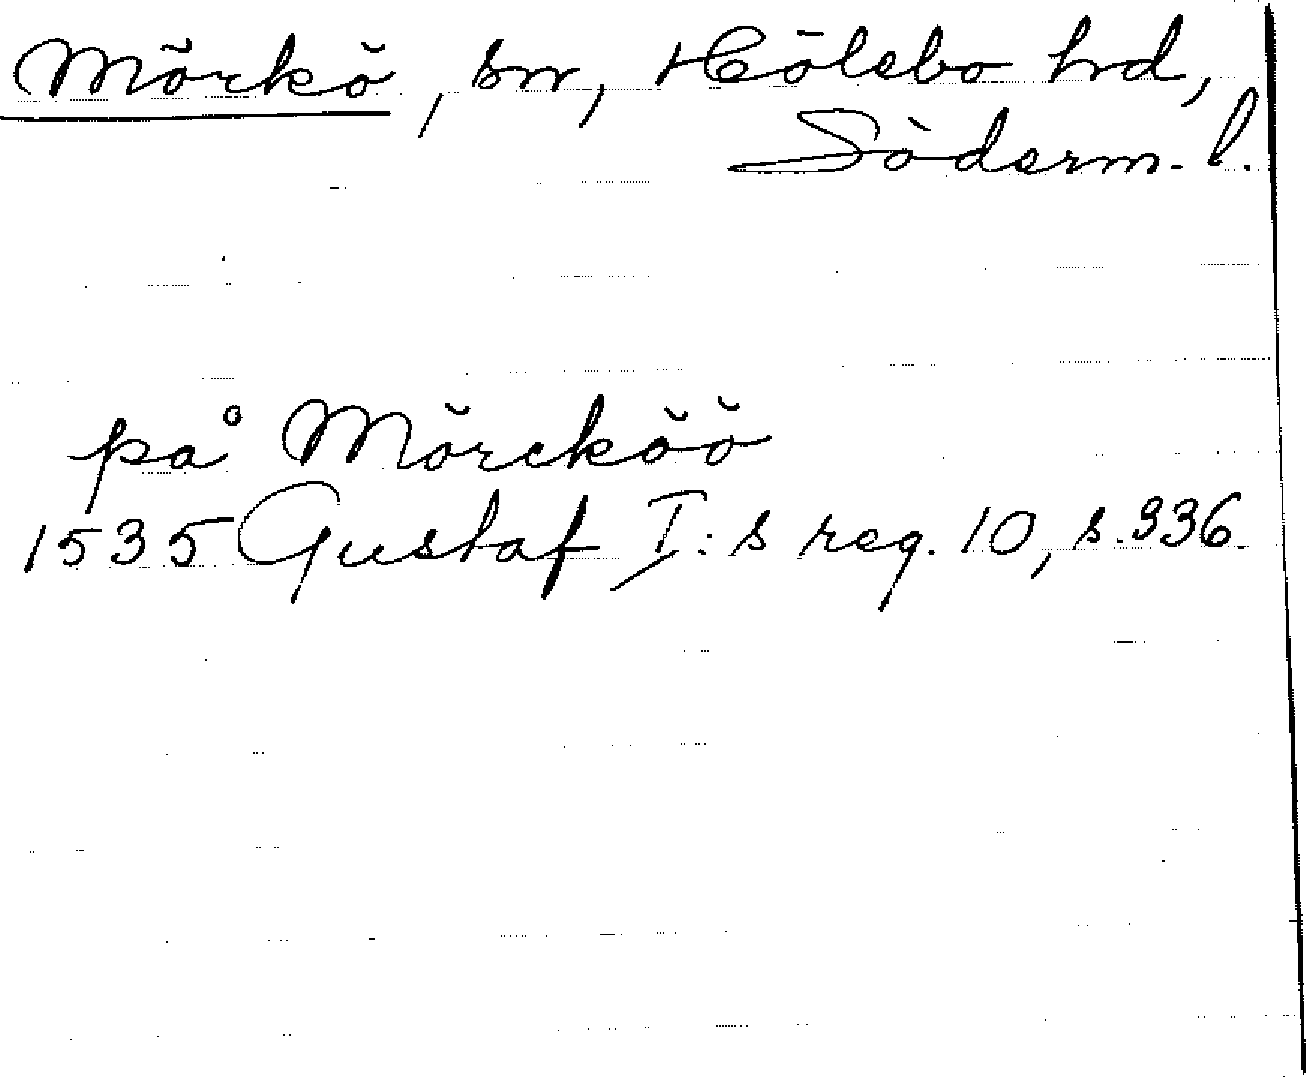 Mörkö, sn, Hölebo hd,
Söderm. l.
på Mörcköö
1535 Gustaf I:s reg. 10, s. 336